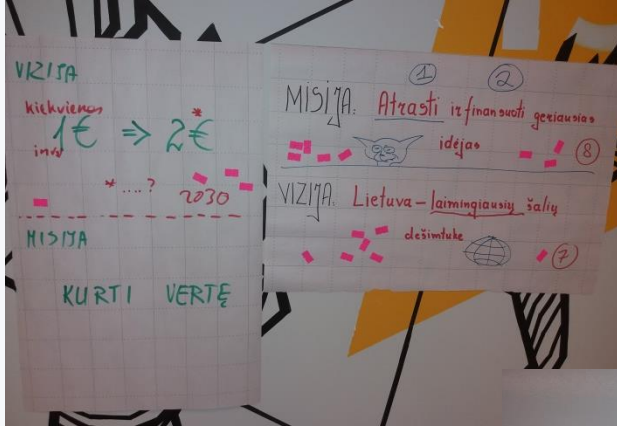 VIZIJA
kiekvienas
1€ => 2€*
invs
*....? 2030
MISIJA
KURTI VERTĘ
1 2
MISIJA: Atrasti ir finansuoti geriausias
idėjas
8
VIZIJA: Lietuva - laimingiausių šalių
dešimtuke
7